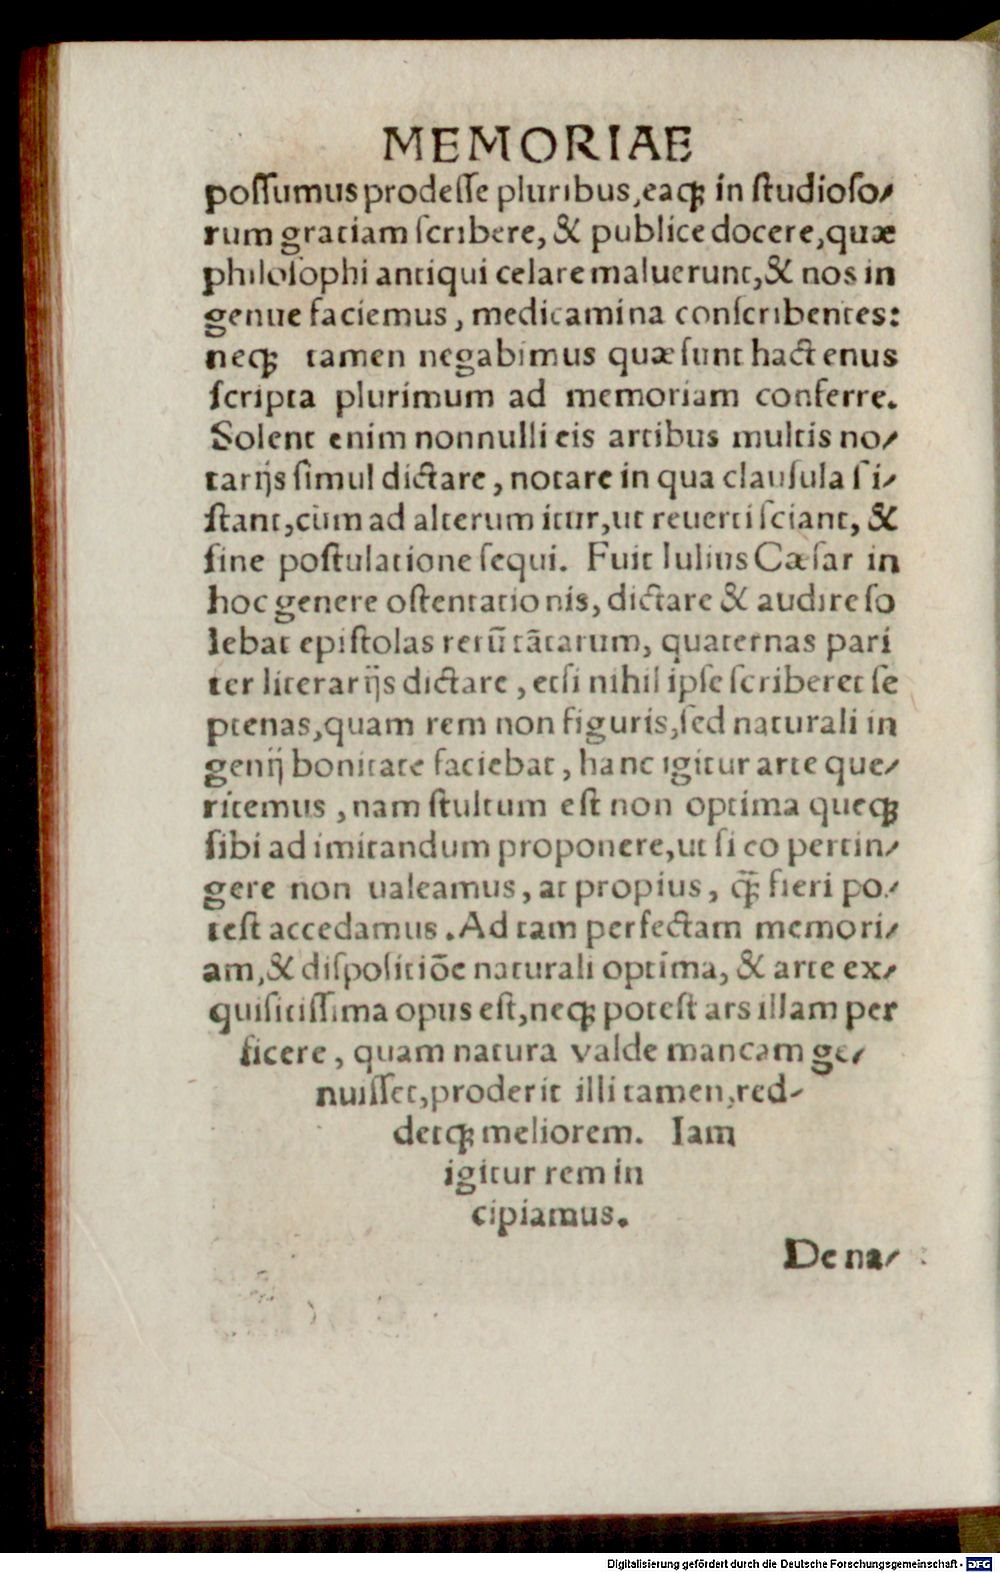 MEMORIAE
poſſumus prodeſſe pluribus, eaqꝫ in ſtudioſo⸗
rum gratiam ſcribere, & publice docere, quæ
philoſophi antiqui celare maluerunt, & nos in
genue faciemus, medicamina conſcribentes:
neqꝫ tamen negabimus quæ ſunt hactenus
ſcripta plurimum ad memoriam conferre.
Solent enim nonnulli eis artibus multis no⸗
tarijs ſimul dictare, notare in qua clauſula ſi⸗
ſtant, cùm ad alterum itur, ut reuerti ſciant, &
ſine poſtulatione ſequi. Fuit Iulius Cæſar in
hoc genere oſtentationis, dictare & audire ſo
lebat epiſtolas rerū tātarum, quaternas pari
ter literarijs dictare, etſi nihil ipſe ſcriberet ſe
ptenas, quam rem non figuris, ſed naturali in
genij bonitate faciebat, hanc igitur arte que⸗
ritemus, nam ſtultum eſt non optima queqꝫ
ſibi ad imitandum proponere, ut ſi eo pertin⸗
gere non ualeamus, at propius, qꝫ̄ fieri po⸗
teſt accedamus. Ad tam perfectam memori⸗
am, & diſpoſitiōe naturali optima, & arte ex⸗
quiſitiſſima opus eſt, neqꝫ poteſt ars illam per
ficere, quam natura valde mancam ge⸗
nuiſſet, proderit illi tamen, red⸗
detqꝫ meliorem. Iam
igitur rem in
cipiamus.
De na⸗
Digitalisierung gefördert durch die Deutsche Forschungsgemeinschaft - DFG